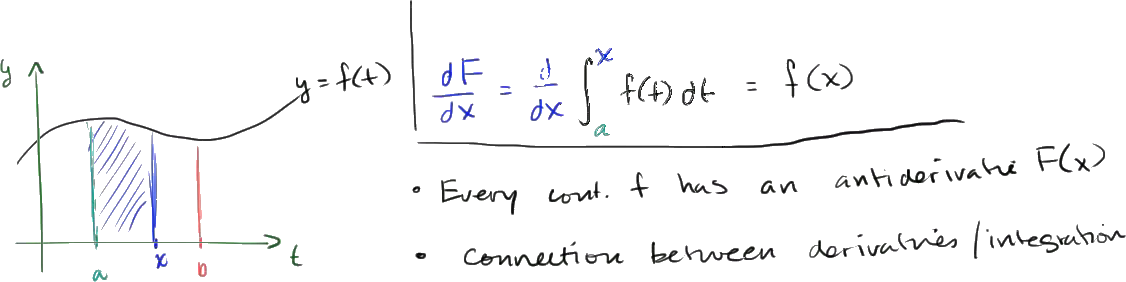 y
y = f(t)
a
x
b
t
dF/dx = d/dx ∫_a^x f(t) dt = f(x)
• Every cont. f has an antiderivative F(x)
• Connection between derivatives / integration